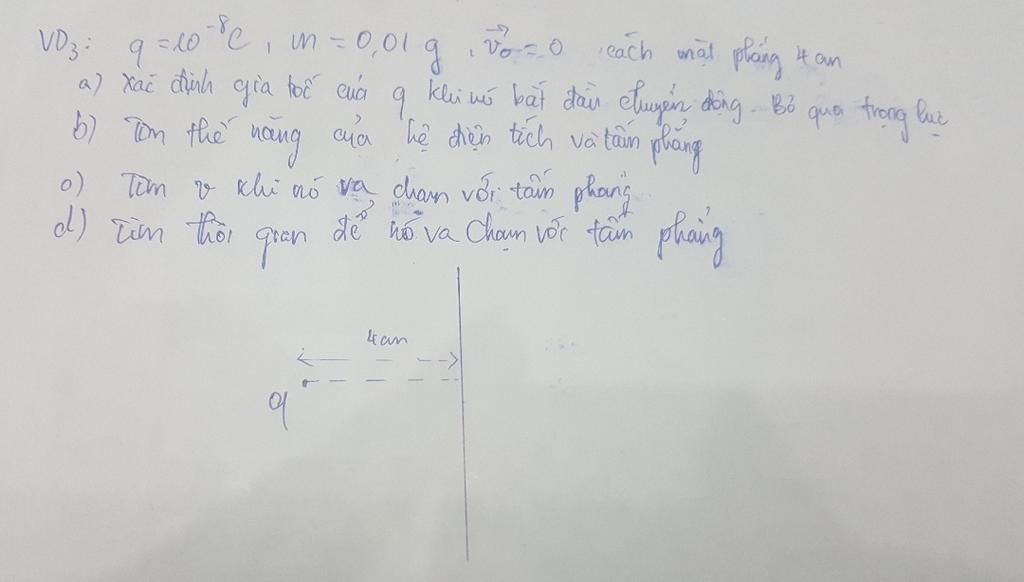 VD3: q = 10⁻⁸C, m = 0,01 g, v⃗₀ = 0 cách mặt phẳng 4 cm
a) Xác định gia tốc của q khi nó bắt đầu chuyển động. Bỏ qua trọng lực
b) Tìm thế năng của hệ điện tích và tấm phẳng
c) Tìm v khi nó va chạm với tấm phẳng
d) Tìm thời gian để nó va chạm với tấm phẳng
4 cm
q